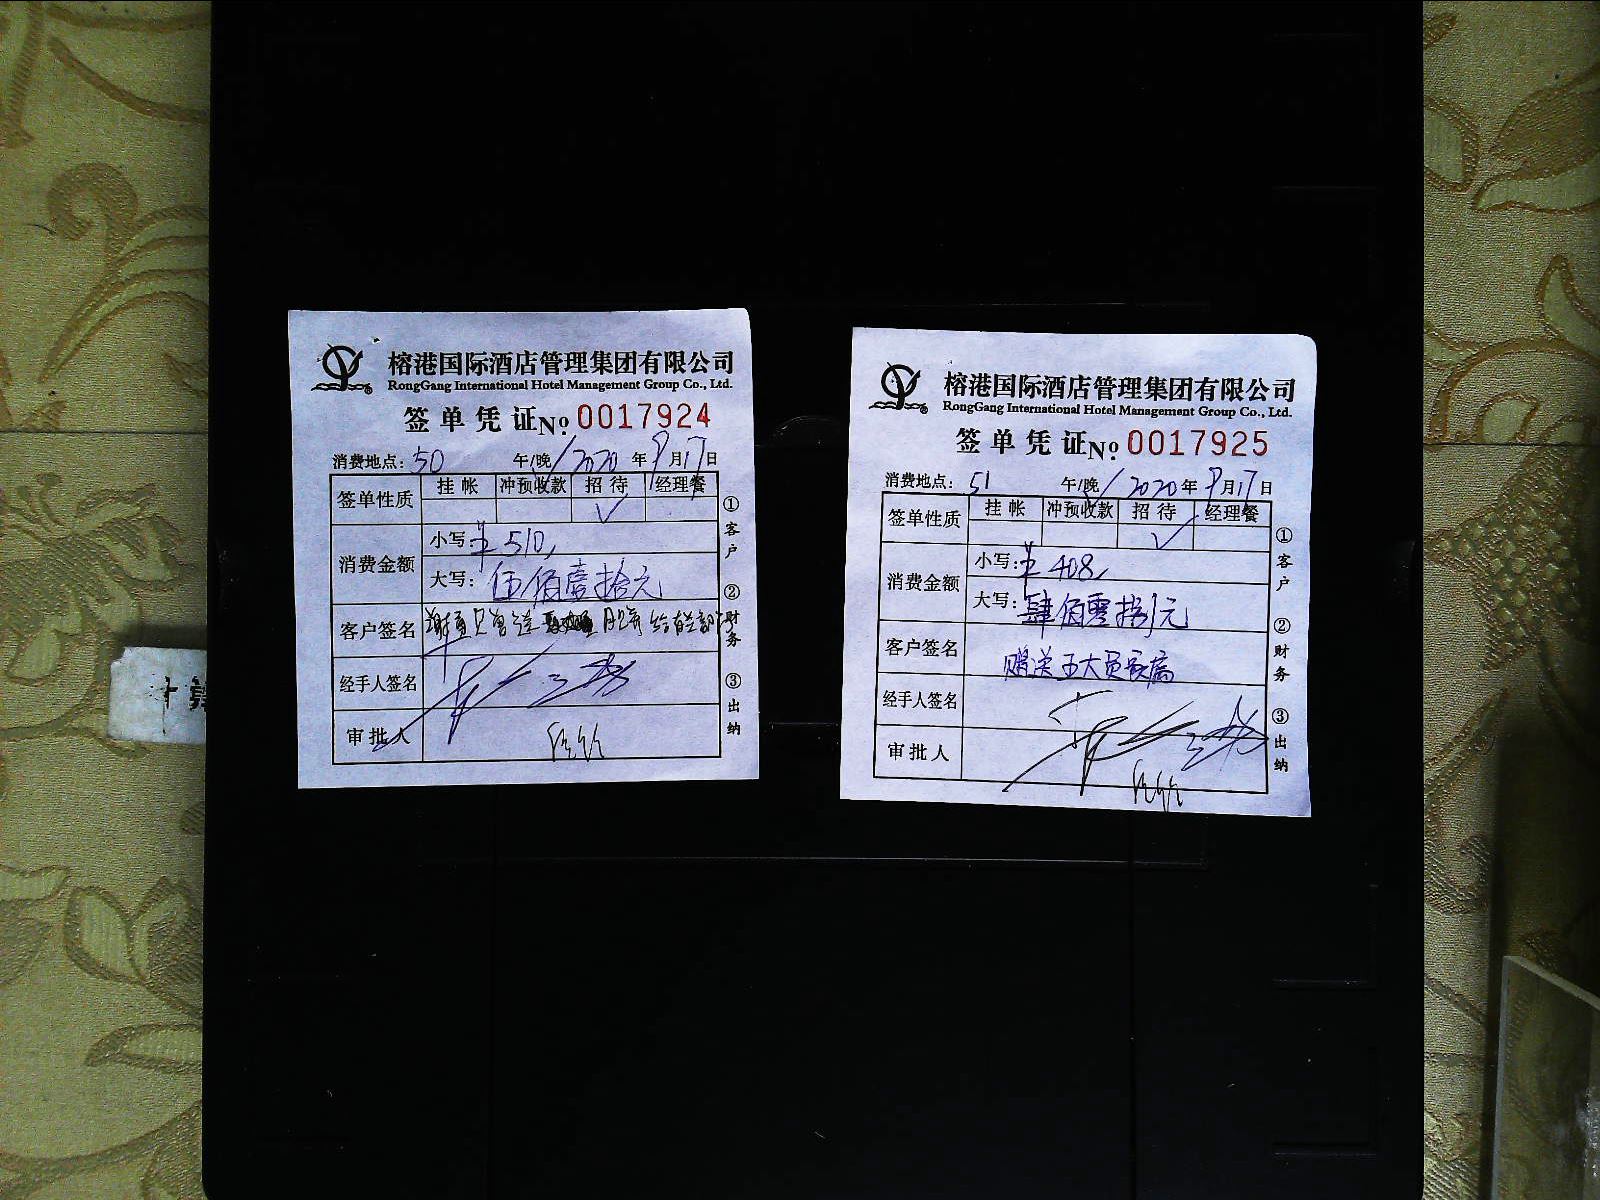 榕港国际酒店管理集团有限公司
RongGang International Hotel Management Group Co., Ltd.
签单凭证 No. 0017924
消费地点: 50 午/晚 2020 年 9 月 17 日
签单性质 挂帐 冲预收款 招待 经理餐
✓
消费金额 小写: ¥ 510,
大写: 伍佰壹拾元
客户签名 月饼给有关部
经手人签名
审批人
① 客户 ② 财务 ③ 出纳
榕港国际酒店管理集团有限公司
RongGang International Hotel Management Group Co., Ltd.
签单凭证 No. 0017925
消费地点: 51 午/晚 2020 年 9 月 17 日
签单性质 挂帐 冲预收款 招待 经理餐
✓
消费金额 小写: ¥ 408,
大写: 肆佰零捌元
客户签名 赠送
经手人签名
审批人
① 客户 ② 财务 ③ 出纳